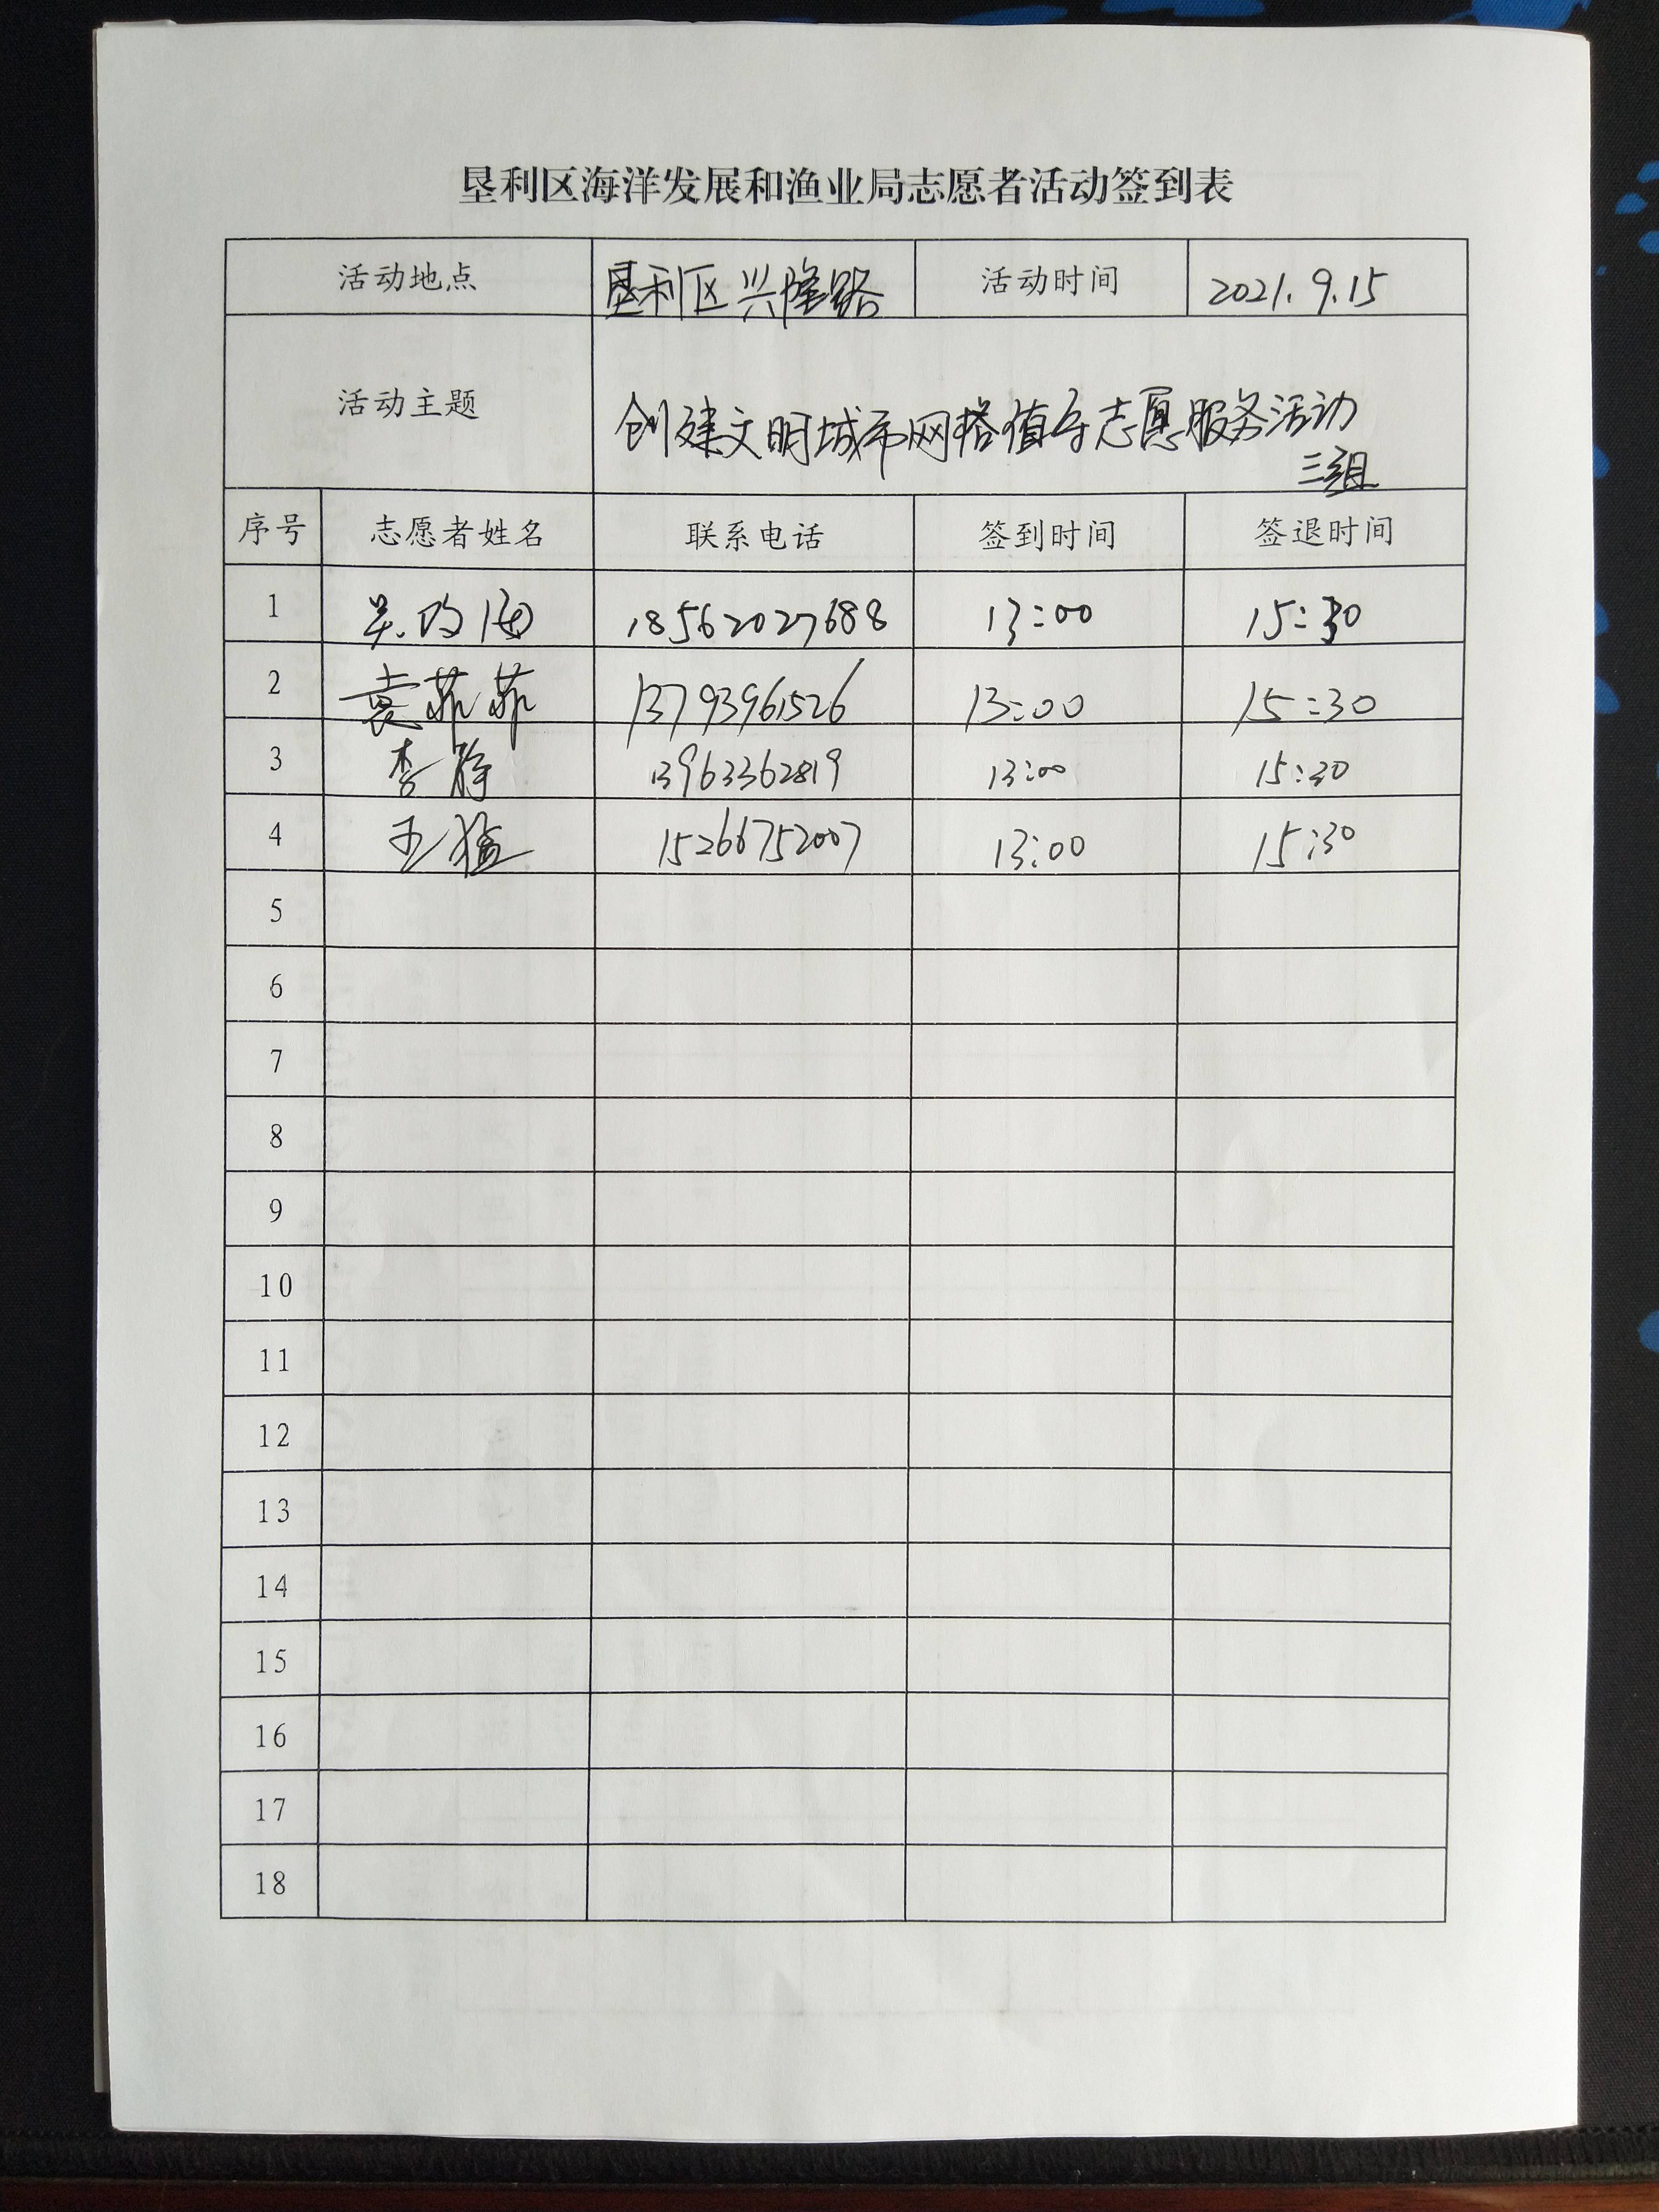 垦利区海洋发展和渔业局志愿者活动签到表
活动地点 垦利区兴隆路 活动时间 2021.9.15
活动主题 创建文明城市网格值守志愿服务活动
三组
序号 志愿者姓名 联系电话 签到时间 签退时间
1 18562027688 13:00 15:30
2 袁菲菲 13793961526 13:00 15:30
3 李静 13963362819 13:00 15:30
4 王猛 15266752007 13:00 15:30
5
6
7
8
9
10
11
12
13
14
15
16
17
18